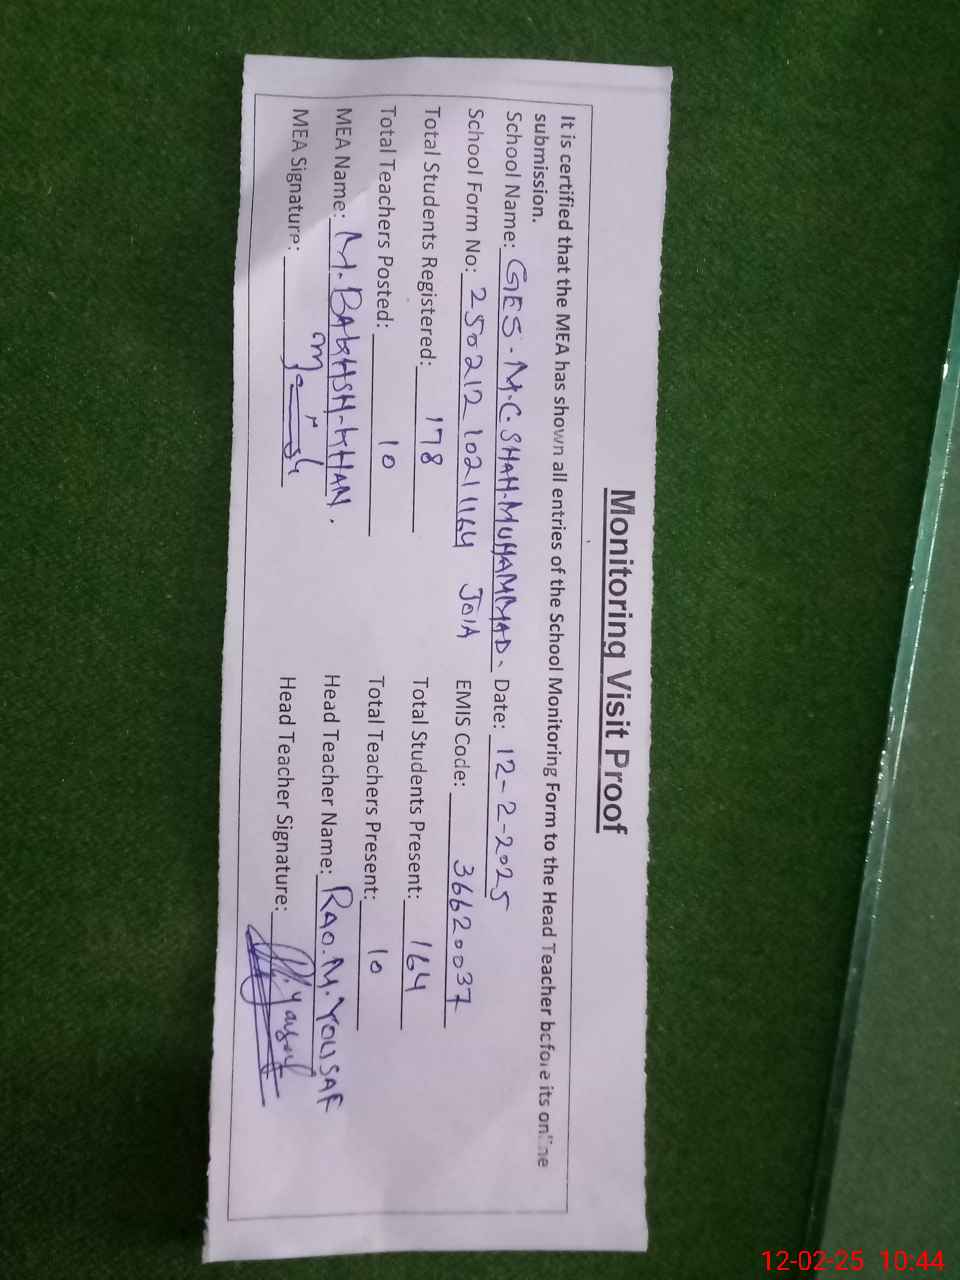 Monitoring Visit Proof
It is certified that the MEA has shown all entries of the School Monitoring Form to the Head Teacher before its online
submission.
School Name: GES. M.C. SHAH. MUHAMMAD. Date: 12-2-2025
School Form No: 25021210211164 JOIA EMIS Code: 36620037
Total Students Registered: 178 Total Students Present: 164
Total Teachers Posted: 10 Total Teachers Present: 10
MEA Name: M. BAKHSH. KHAN. Head Teacher Name: RAO. M. YOUSAF
MEA Signature: Head Teacher Signature:
12-02-25 10:44